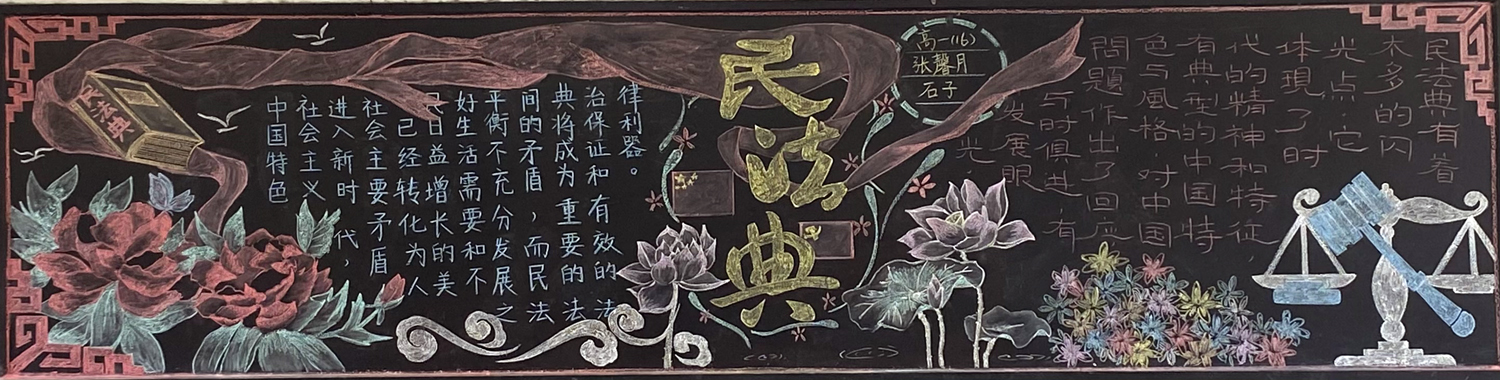 民法典
民法典
高一(16)
张馨月
石子
中国特色
社会主义
进入新时代，
社会主要矛盾
已经转化为人
民日益增长的美
好生活需要和不
平衡不充分发展之
间的矛盾，而民法
典将成为重要的法
治保证和有效的法
律利器。
民法典有着
太多的闪
光点，它
体現了时
代的精神和特征，
有典型的中国特
色与風格，对中国
問题作出了回应
与时俱进，有
发展眼
光